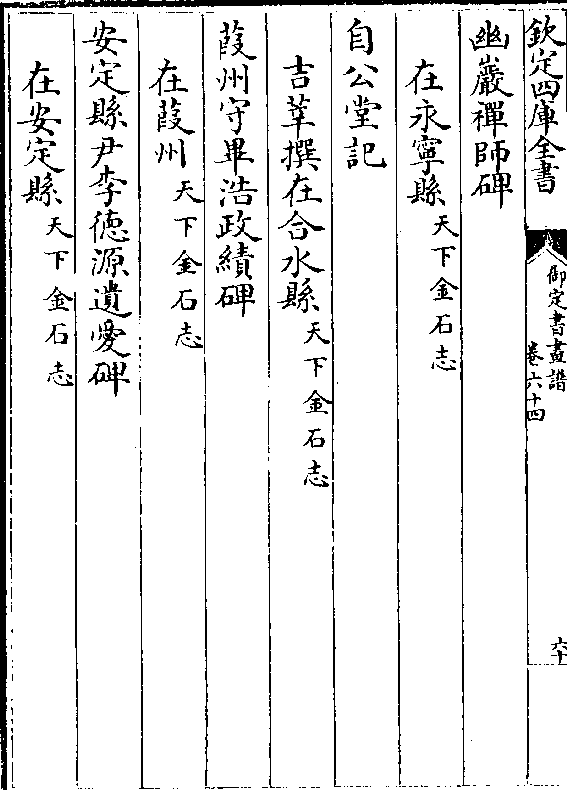 欽定四庫全書
御定書畫譜
卷六十四
六十
幽巖禪師碑
在永寧縣天下金石志
自公堂記
吉莘撰在合水縣天下金石志
葭州守畢浩政績碑
在葭州天下金石志
安定縣尹李德源遺愛碑
在安定縣天下金石志